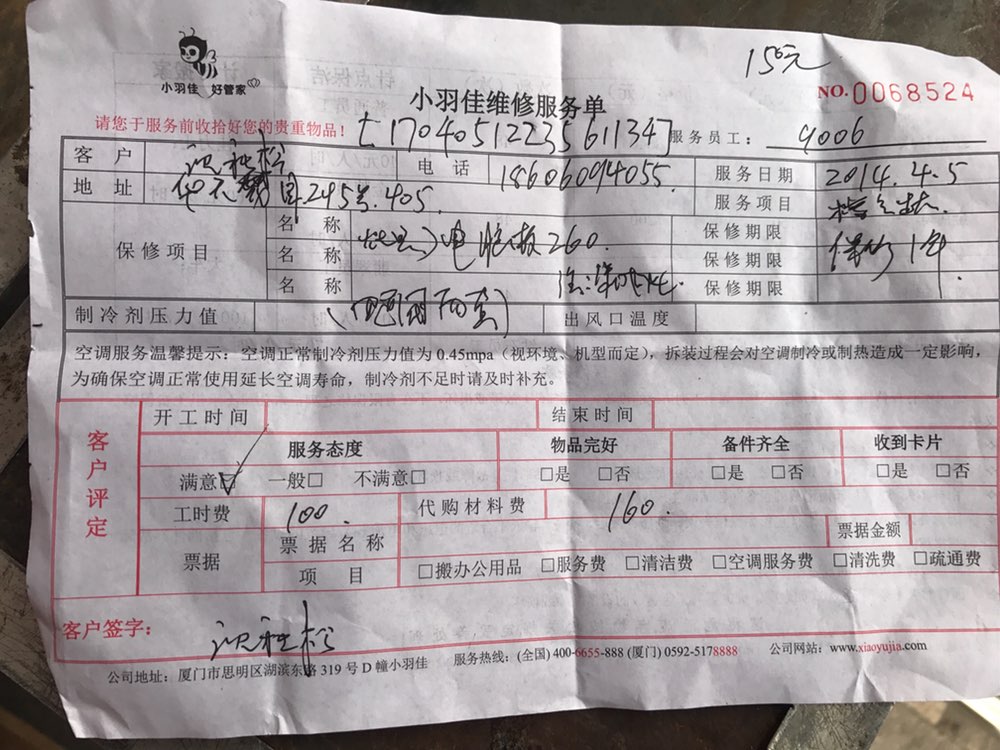 小羽佳 好管家
150元
小羽佳维修服务单
NO. 0068524
请您于服务前收拾好您的贵重物品！
[17040512235611347]
服务员工： 9006
客户
电话 18606094055
服务日期 2014.4.5
地址 245号.405
服务项目
保修项目
名称 电脑板260.
保修期限
名称
保修期限 保修1年
名称
保修期限
制冷剂压力值
出风口温度
空调服务温馨提示：空调正常制冷剂压力值为0.45mpa（视环境、机型而定），拆装过程会对空调制冷或制热造成一定影响，
为确保空调正常使用延长空调寿命，制冷剂不足时请及时补充。
客户评定
开工时间 结束时间
服务态度 物品完好 备件齐全 收到卡片
满意□ 一般□ 不满意□ □是 □否 □是 □否 □是 □否
工时费 100. 代购材料费 160.
票据 票据名称 票据金额
项目 □搬办公用品 □服务费 □清洁费 □空调服务费 □清洗费 □疏通费
客户签字：
公司地址：厦门市思明区湖滨东路319号D幢小羽佳 服务热线：(全国) 400-6655-888 (厦门) 0592-5178888 公司网站：www.xiaoyujia.com